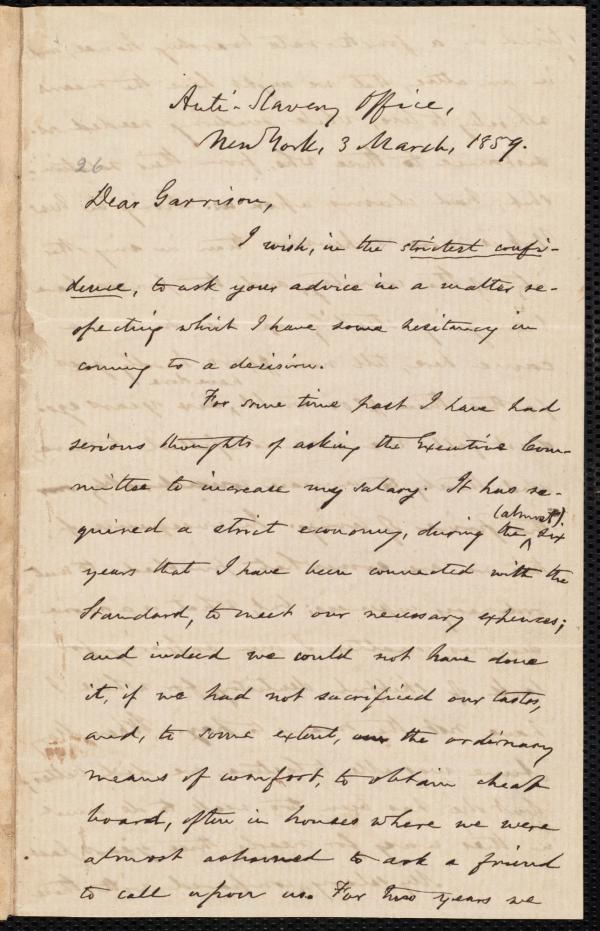 Anti-Slavery Office,
New York, 3 March, 1859.
26
Dear Garrison,
I wish, in the strictest confi-
dence, to ask your advice in a matter re-
specting which I have some hesitancy in
coming to a decision.
For some time past I have had
serious thoughts of asking the Executive Com-
mittee to increase my salary. It has re-
quired a strict economy, during the (almost) six
years that I have been connected with the
Standard, to meet our necessary expences;
and indeed we could not have done
it, if we had not sacrificed our tastes,
and, to some extent, our the ordinary
means of comfort, to obtain cheap
board, often in houses where we were
almost ashamed to ask a friend
to call upon us. For two years we